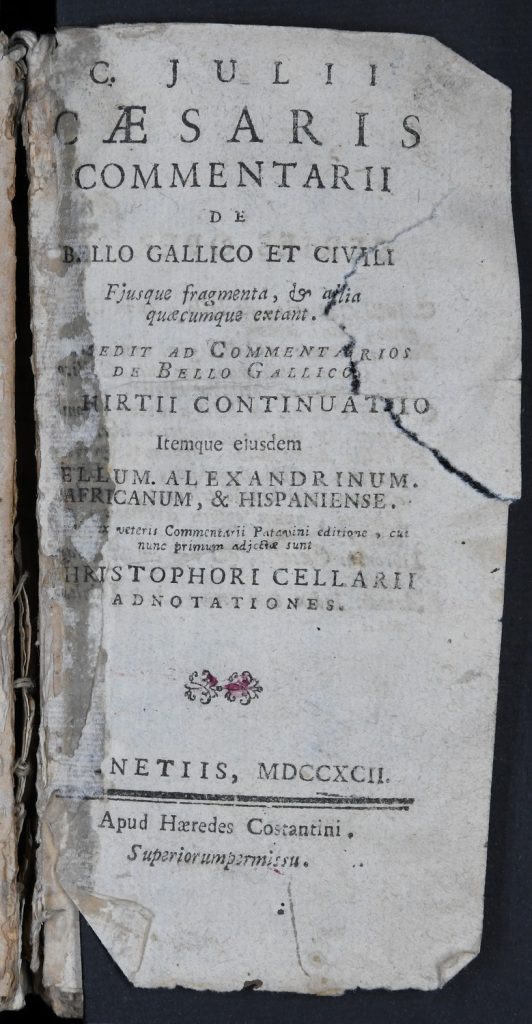 C. JULII
CÆSARIS
COMMENTARII
DE
BELLO GALLICO ET CIVILI
Ejusque fragmenta, & alia
quæcumque extant.
EDIT AD COMMENTARIOS
DE BELLO GALLICO
HIRTII CONTINUATIO
Itemque ejusdem
ELLUM. ALEXANDRINUM.
AFRICANUM, & HISPANIENSE.
x veteris Commentarii Patavini editione, cui
nunc primum adjectæ sunt
HRISTOPHORI CELLARII
ADNOTATIONES.
NETIIS, MDCCXCII.
Apud Hæredes Costantini.
Superiorumpermissu.